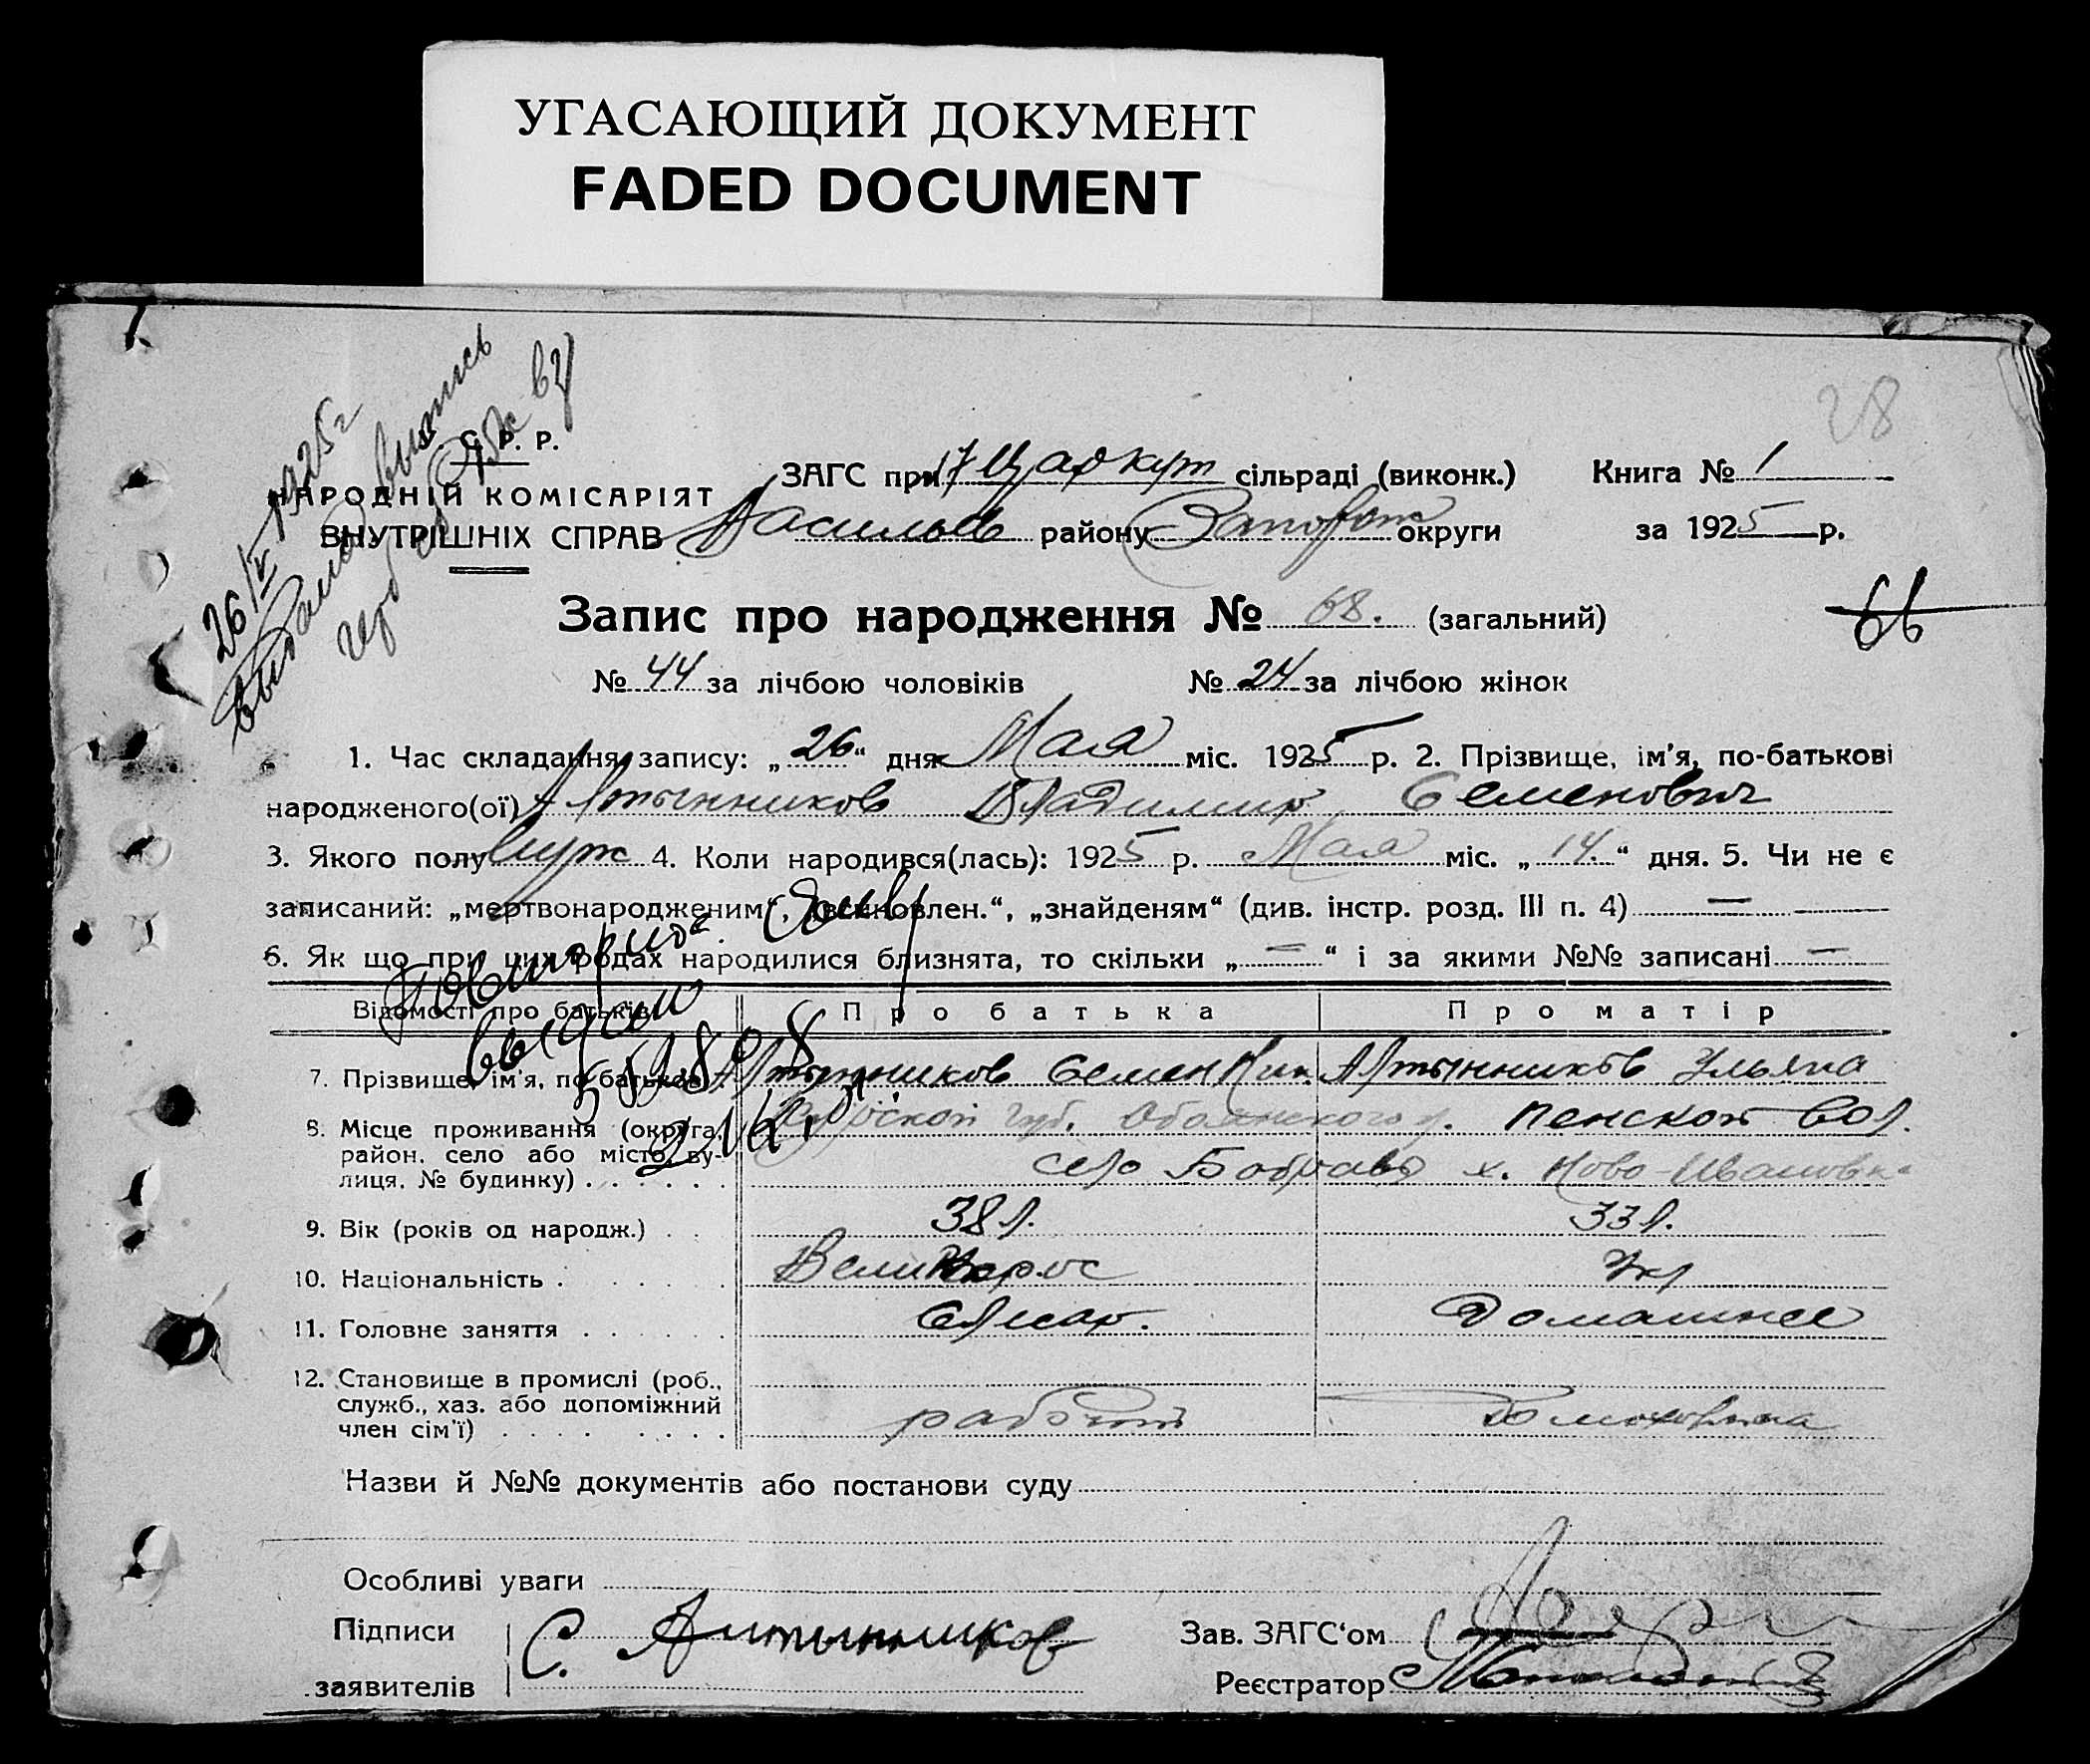 УГАСАЮЩИЙ ДОКУМЕНТ
FADED DOCUMENT
28
26/V 1925 г
Выдана выпись
С. Р. Р.
НАРОДНІЙ КОМІСАРІЯТ
ВНУТРІШНІХ СПРАВ
ЗАГС при сільраді (виконк.) Книга № 1
Васильев району Запорож округи за 1925 р.
Запис про народження № 68. (загальний)
66
№ 44 за лічбою чоловіків № 24 за лічбою жінок
1. Час складання запису: „26“ дня Мая міс. 1925 р. 2. Прізвище, ім'я, по-батькові
народженого(ої) Алтынников Владимир Семенович
3. Якого полу муж 4. Коли народився(лась): 1925 р. Мая міс. „14.“ дня. 5. Чи не є
записаний: „мертвонародженим“, „всиновлен.“, „знайденям“ (див. інстр. розд. III п. 4) —
6. Як що при цих родах народилися близнята, то скільки „—“ і за якими №№ записані —
Повторно
выдано
Відомості про батьків Про батька Про матір
7. Прізвище, ім'я, по-батькові Алтынников Семен Ник. Алтынников Ульяна
8. Місце проживання (округа, Курской губ. Обоянского у. Пенской вол.
район, село або місто, ву- село Бобраво х. Ново-Ивановка
лиця, № будинку)
9. Вік (років од народж.) 38 л. 33 л.
10. Національність Великорос Укр
11. Головне заняття Слесар. Домашнее
12. Становище в промислі (роб.,
служб., хаз. або допоміжний рабочий
член сім'ї)
Назви й №№ документів або постанови суду
Особливі уваги
Підписи С. Алтынников Зав. ЗАГС‘ом
заявителів Реєстратор